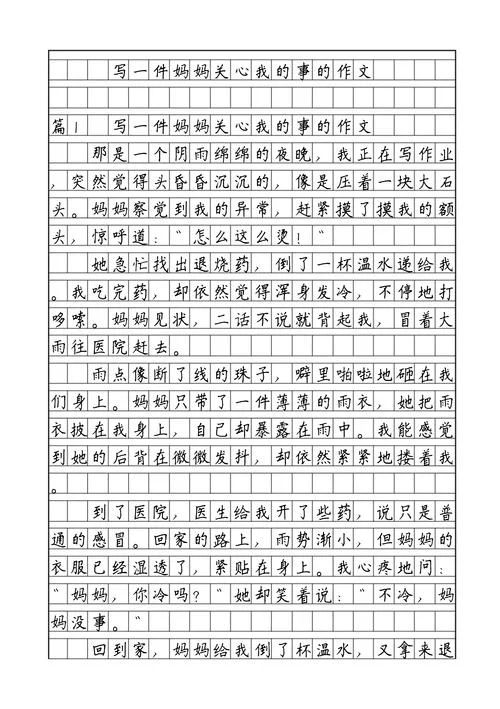 写一件妈妈关心我的事的作文
篇1 写一件妈妈关心我的事的作文
那是一个阴雨绵绵的夜晚，我正在写作业
，突然觉得头昏昏沉沉的，像是压着一块大石
头。妈妈察觉到我的异常，赶紧摸了摸我的额
头，惊呼道："怎么这么烫！"
她急忙找出退烧药，倒了一杯温水递给我
。我吃完药，却依然觉得浑身发冷，不停地打
哆嗦。妈妈见状，二话不说就背起我，冒着大
雨往医院赶去。
雨点像断了线的珠子，噼里啪啦地砸在我
们身上。妈妈只带了一件薄薄的雨衣，她把雨
衣披在我身上，自己却暴露在雨中。我能感觉
到她的后背在微微发抖，却依然紧紧地搂着我
。
到了医院，医生给我开了些药，说只是普
通的感冒。回家的路上，雨势渐小，但妈妈的
衣服已经湿透了，紧贴在身上。我心疼地问：
"妈妈，你冷吗？"她却笑着说："不冷，妈
妈没事。"
回到家，妈妈给我倒了杯温水，又拿来退